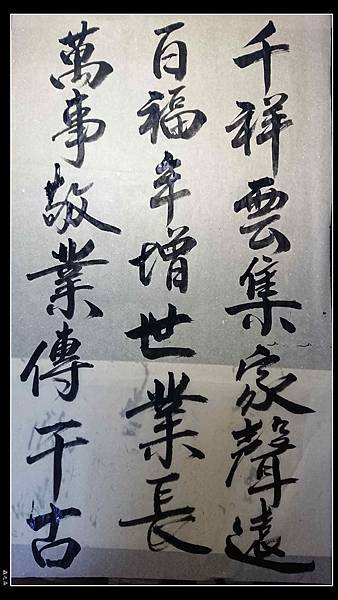 千祥雲集家聲遠
百福年增世業長
萬事敬業傳千古